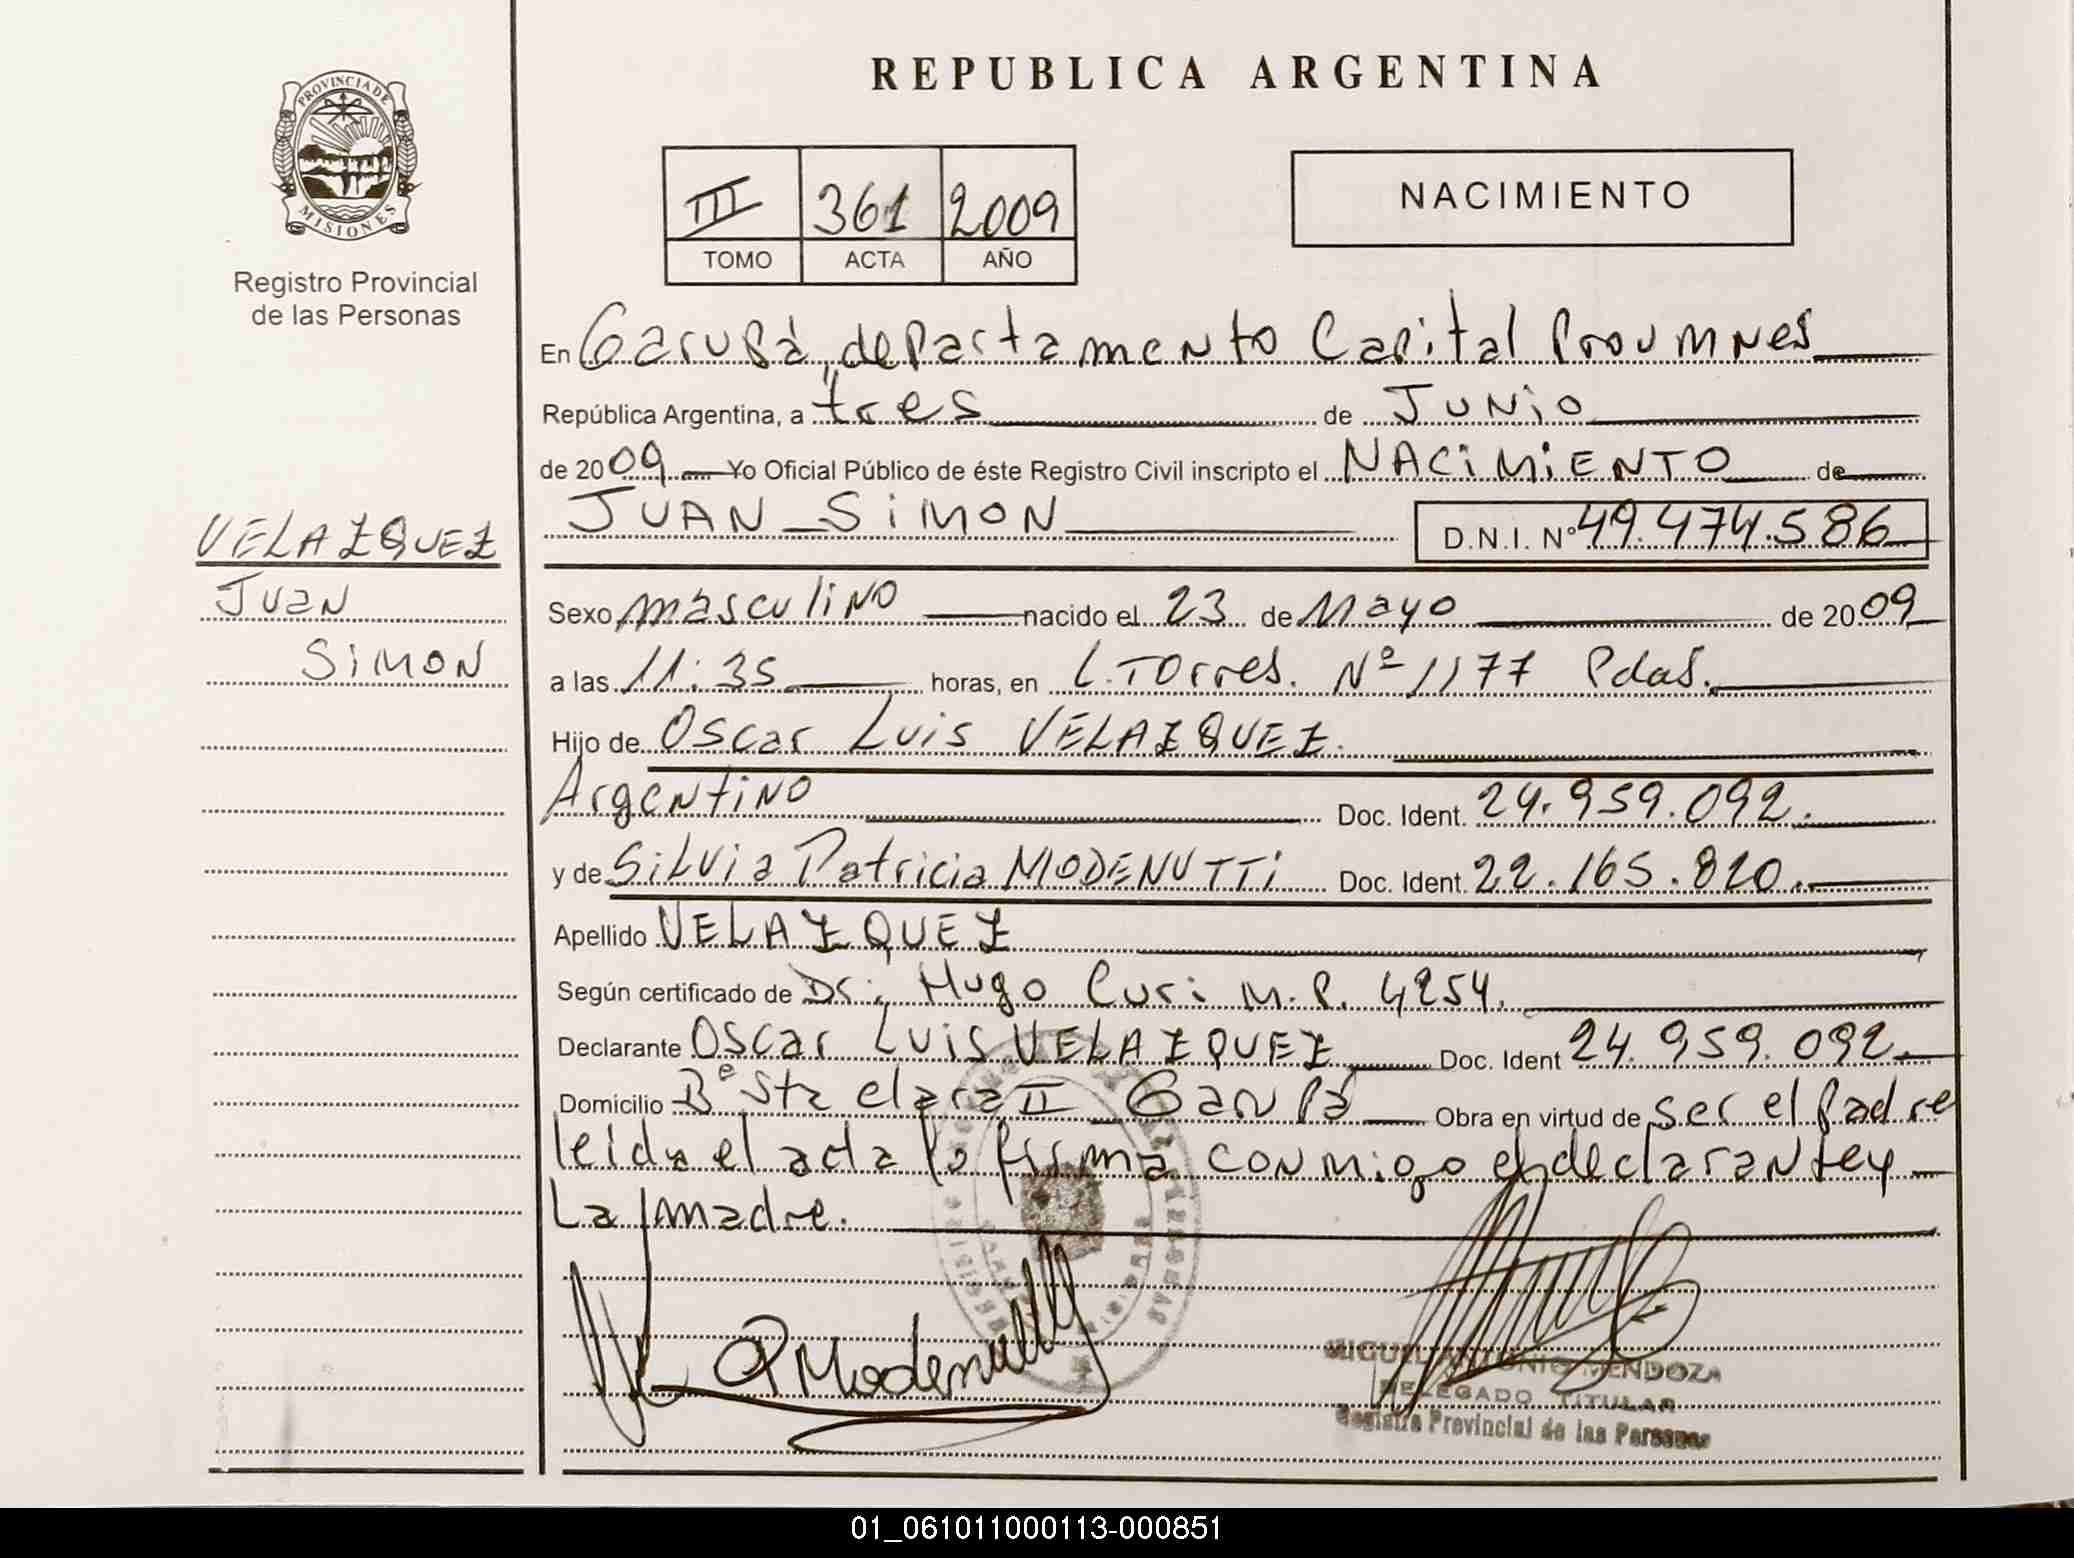 PROVINCIA DE
MISIONES
Registro Provincial
de las Personas
VELAZQUEZ
Juan
SiMON
REPUBLICA ARGENTINA
III 361 2009
TOMO ACTA AÑO
NACIMIENTO
En Garupá, departamento Capital Prov Mnes
República Argentina, a tres de Junio
de 2009 Yo Oficial Público de éste Registro Civil inscripto el NACiMiENTO de
JUAN SiMON D.N.I. Nº 49.474.586
Sexo masculino nacido el 23 de Mayo de 2009
a las 11:35 horas, en L. Torres. Nº 1177 Pdas.
Hijo de Oscar Luis VELAZQUEZ.
Argentino Doc. Ident. 24.959.092.
y de Silvia Patricia MODENUTTi Doc. Ident. 22.165.820.
Apellido VELAZQUEZ
Según certificado de Dr: Hugo Curi M.P. 4254.
Declarante Oscar Luis VELAZQUEZ Doc. Ident 24.959.092.
Domicilio Bº Sta clara II Garupá Obra en virtud de ser el Padre
leida el acta la firma conmigo el declarante y
La madre.
PModenutti
MIGUEL ANTONIO MENDOZA
DELEGADO TITULAR
Registro Provincial de las Personas
01_061011000113-000851